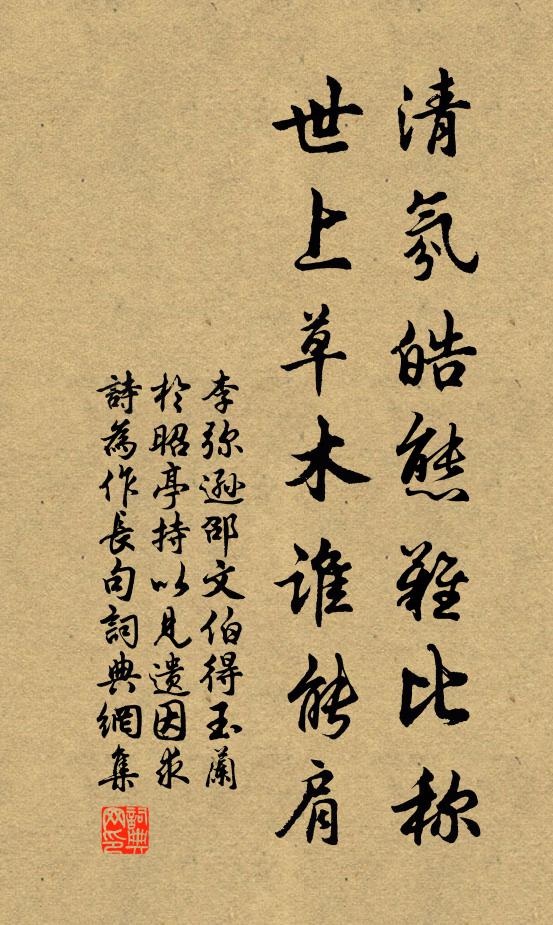 清氛皓態難比称
世上草木誰能肩
李弥遜邵文伯得玉蘭
於昭亭持以見遺因求
詩為作長句詞典網集
詞典网印